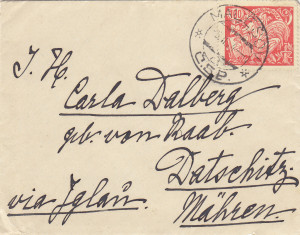 I. H.
Carla Dalberg
gb. von Raab.
Datschitz
via Iglau.
Mähren.
Č.S.P.